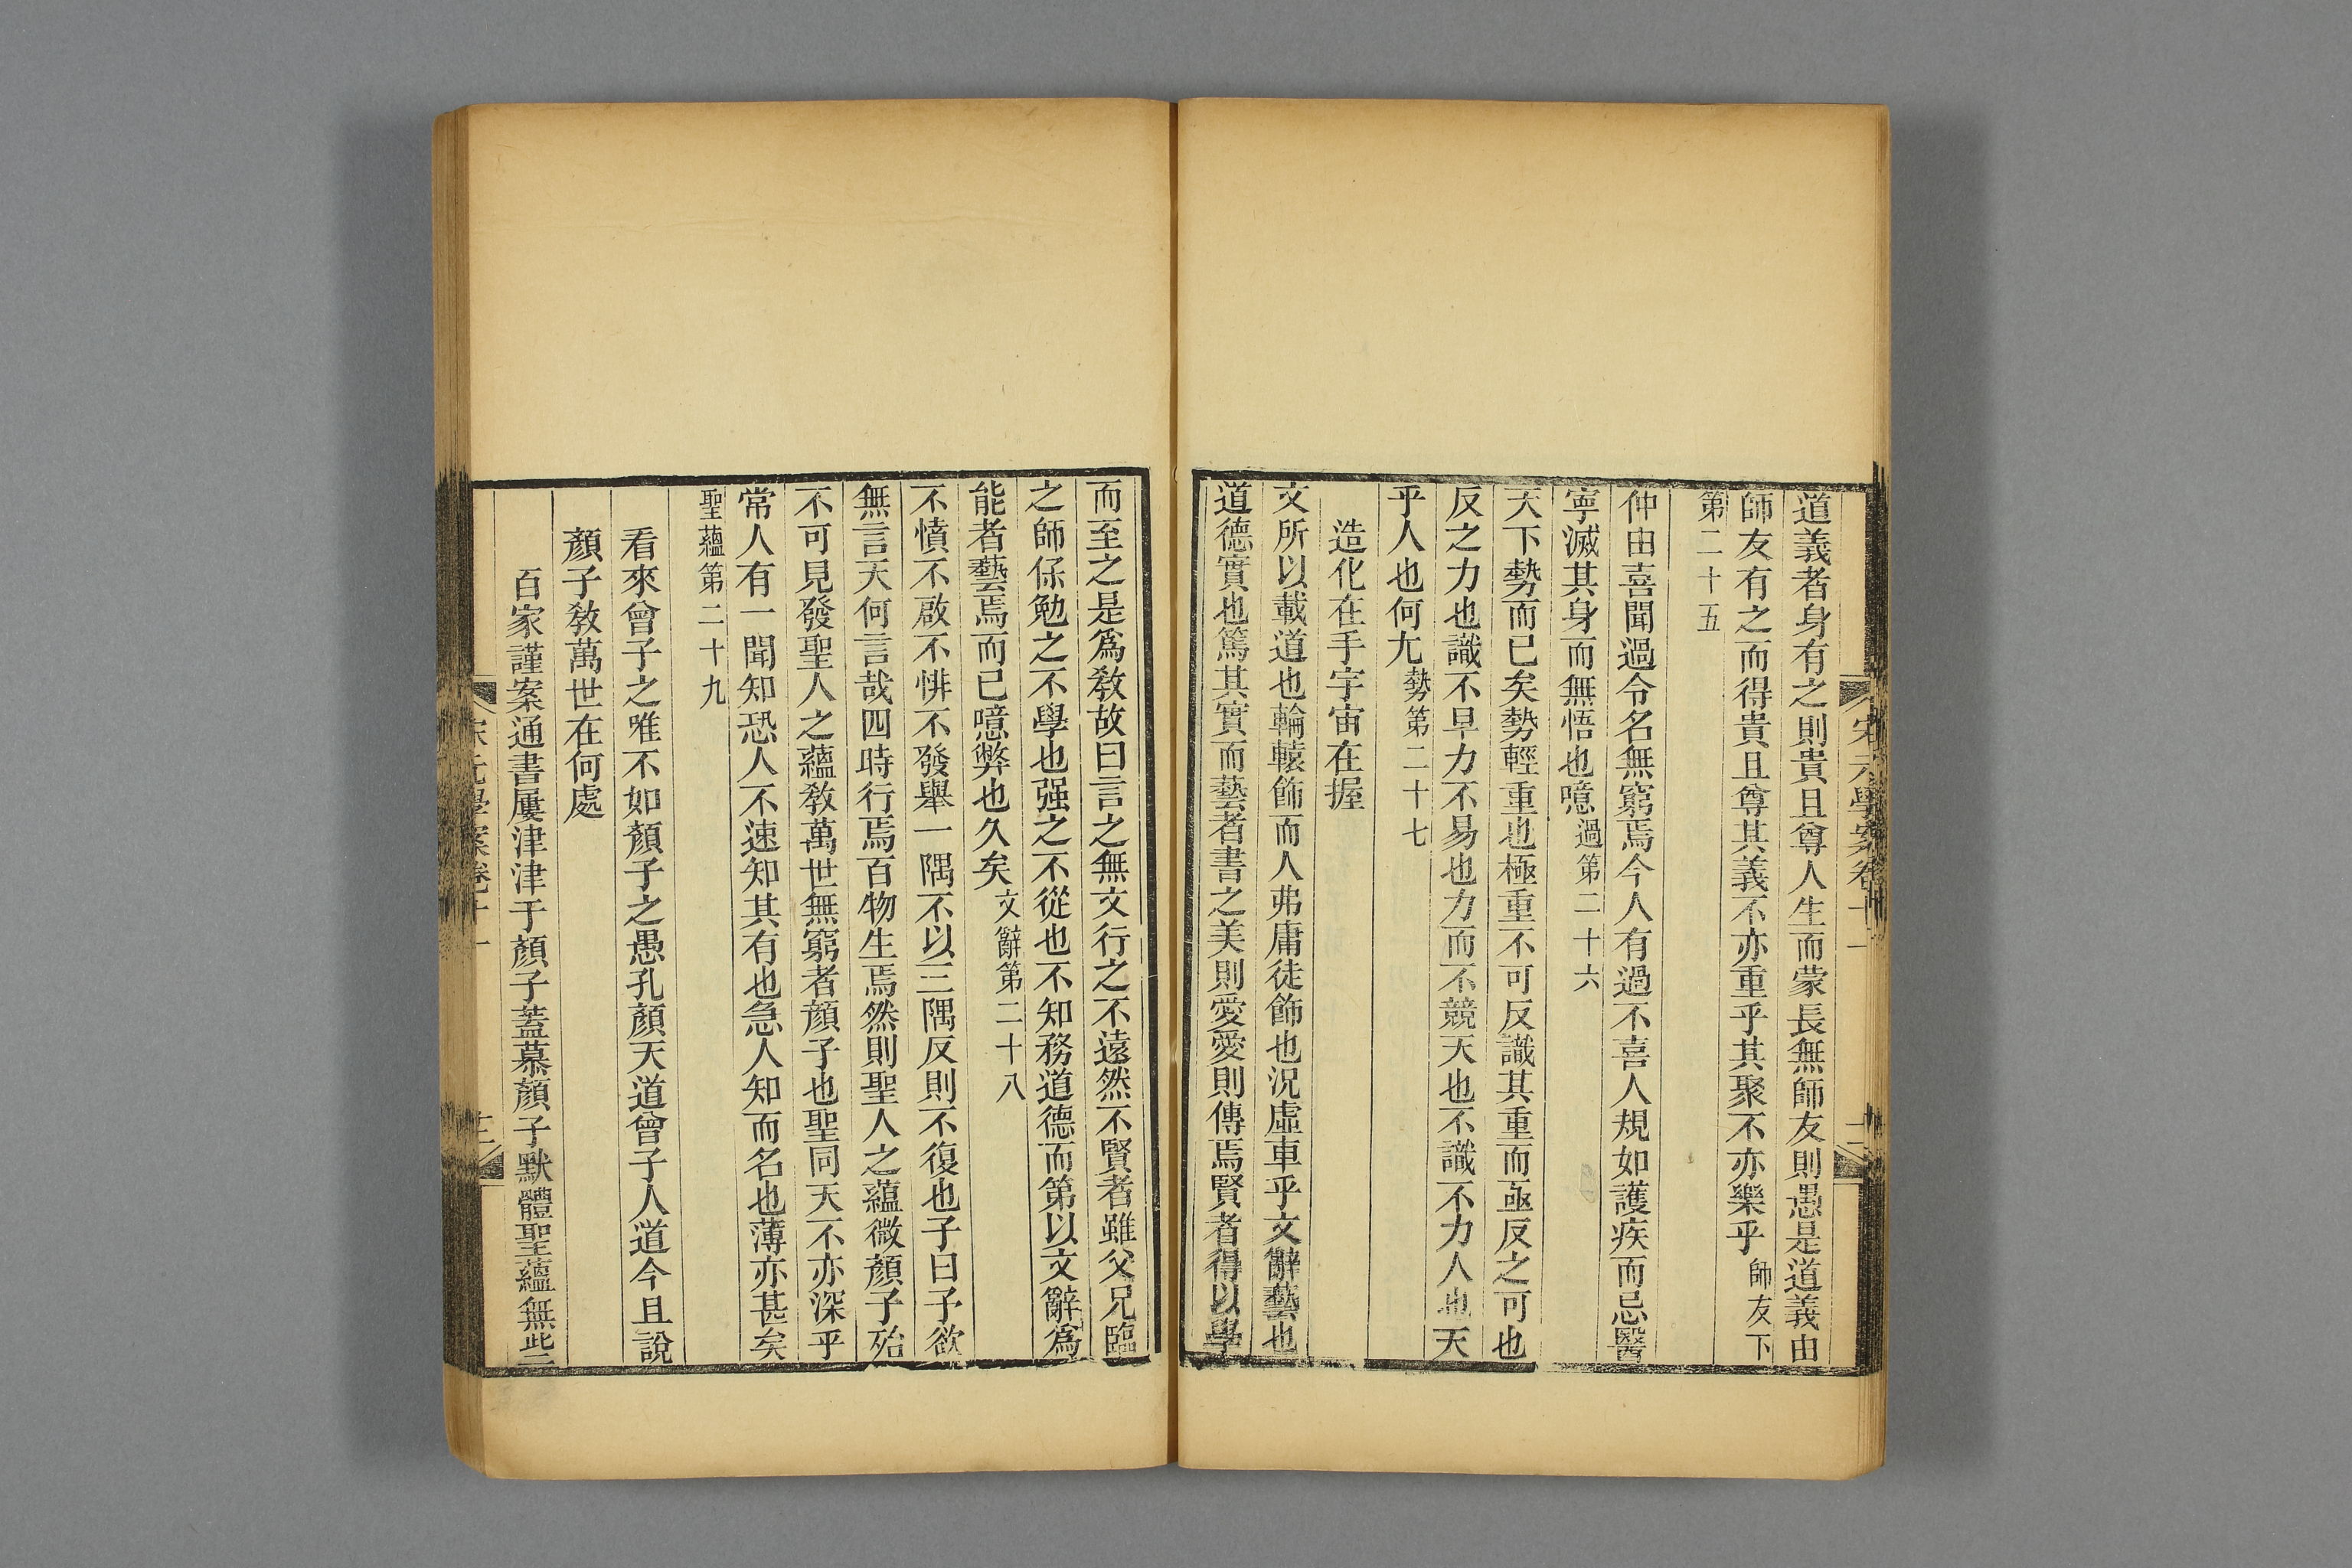 宋元學案卷十一
道義者身有之則貴且尊人生而蒙長無師友則愚是道義由
師友有之而得貴且尊其義不亦重乎其聚不亦樂乎師友下
第二十五
仲由喜聞過令名無窮焉今人有過不喜人規如護疾而忌醫
寧滅其身而無悟也噫過第二十六
天下勢而已矣勢輕重也極重不可反識其重而亟反之可也
反之力也識不早力不易也力而不競天也不識不力人也天
乎人也何尤勢第二十七
造化在手宇宙在握
文所以載道也輪轅飾而人弗庸徒飾也況虛車乎文辭藝也
道德實也篤其實而藝者書之美則愛愛則傳焉賢者得以學
而至之是爲敎故曰言之無文行之不遠然不賢者雖父兄臨
之師保勉之不學也强之不從也不知務道德而第以文辭爲
能者藝焉而已噫弊也久矣文辭第二十八
不憤不啟不悱不發舉一隅不以三隅反則不復也子曰予欲
無言天何言哉四時行焉百物生焉然則聖人之蘊微顏子殆
不可見發聖人之蘊敎萬世無窮者顏子也聖同天不亦深乎
常人有一聞知恐人不速知其有也急人知而名也薄亦甚矣
聖蘊第二十九
看來曾子之唯不如顏子之愚孔顏天道曾子人道今且說
顏子敎萬世在何處
百家謹案通書屢津津于顏子蓋慕顏子默體聖蘊無些子
宋元學案卷十一